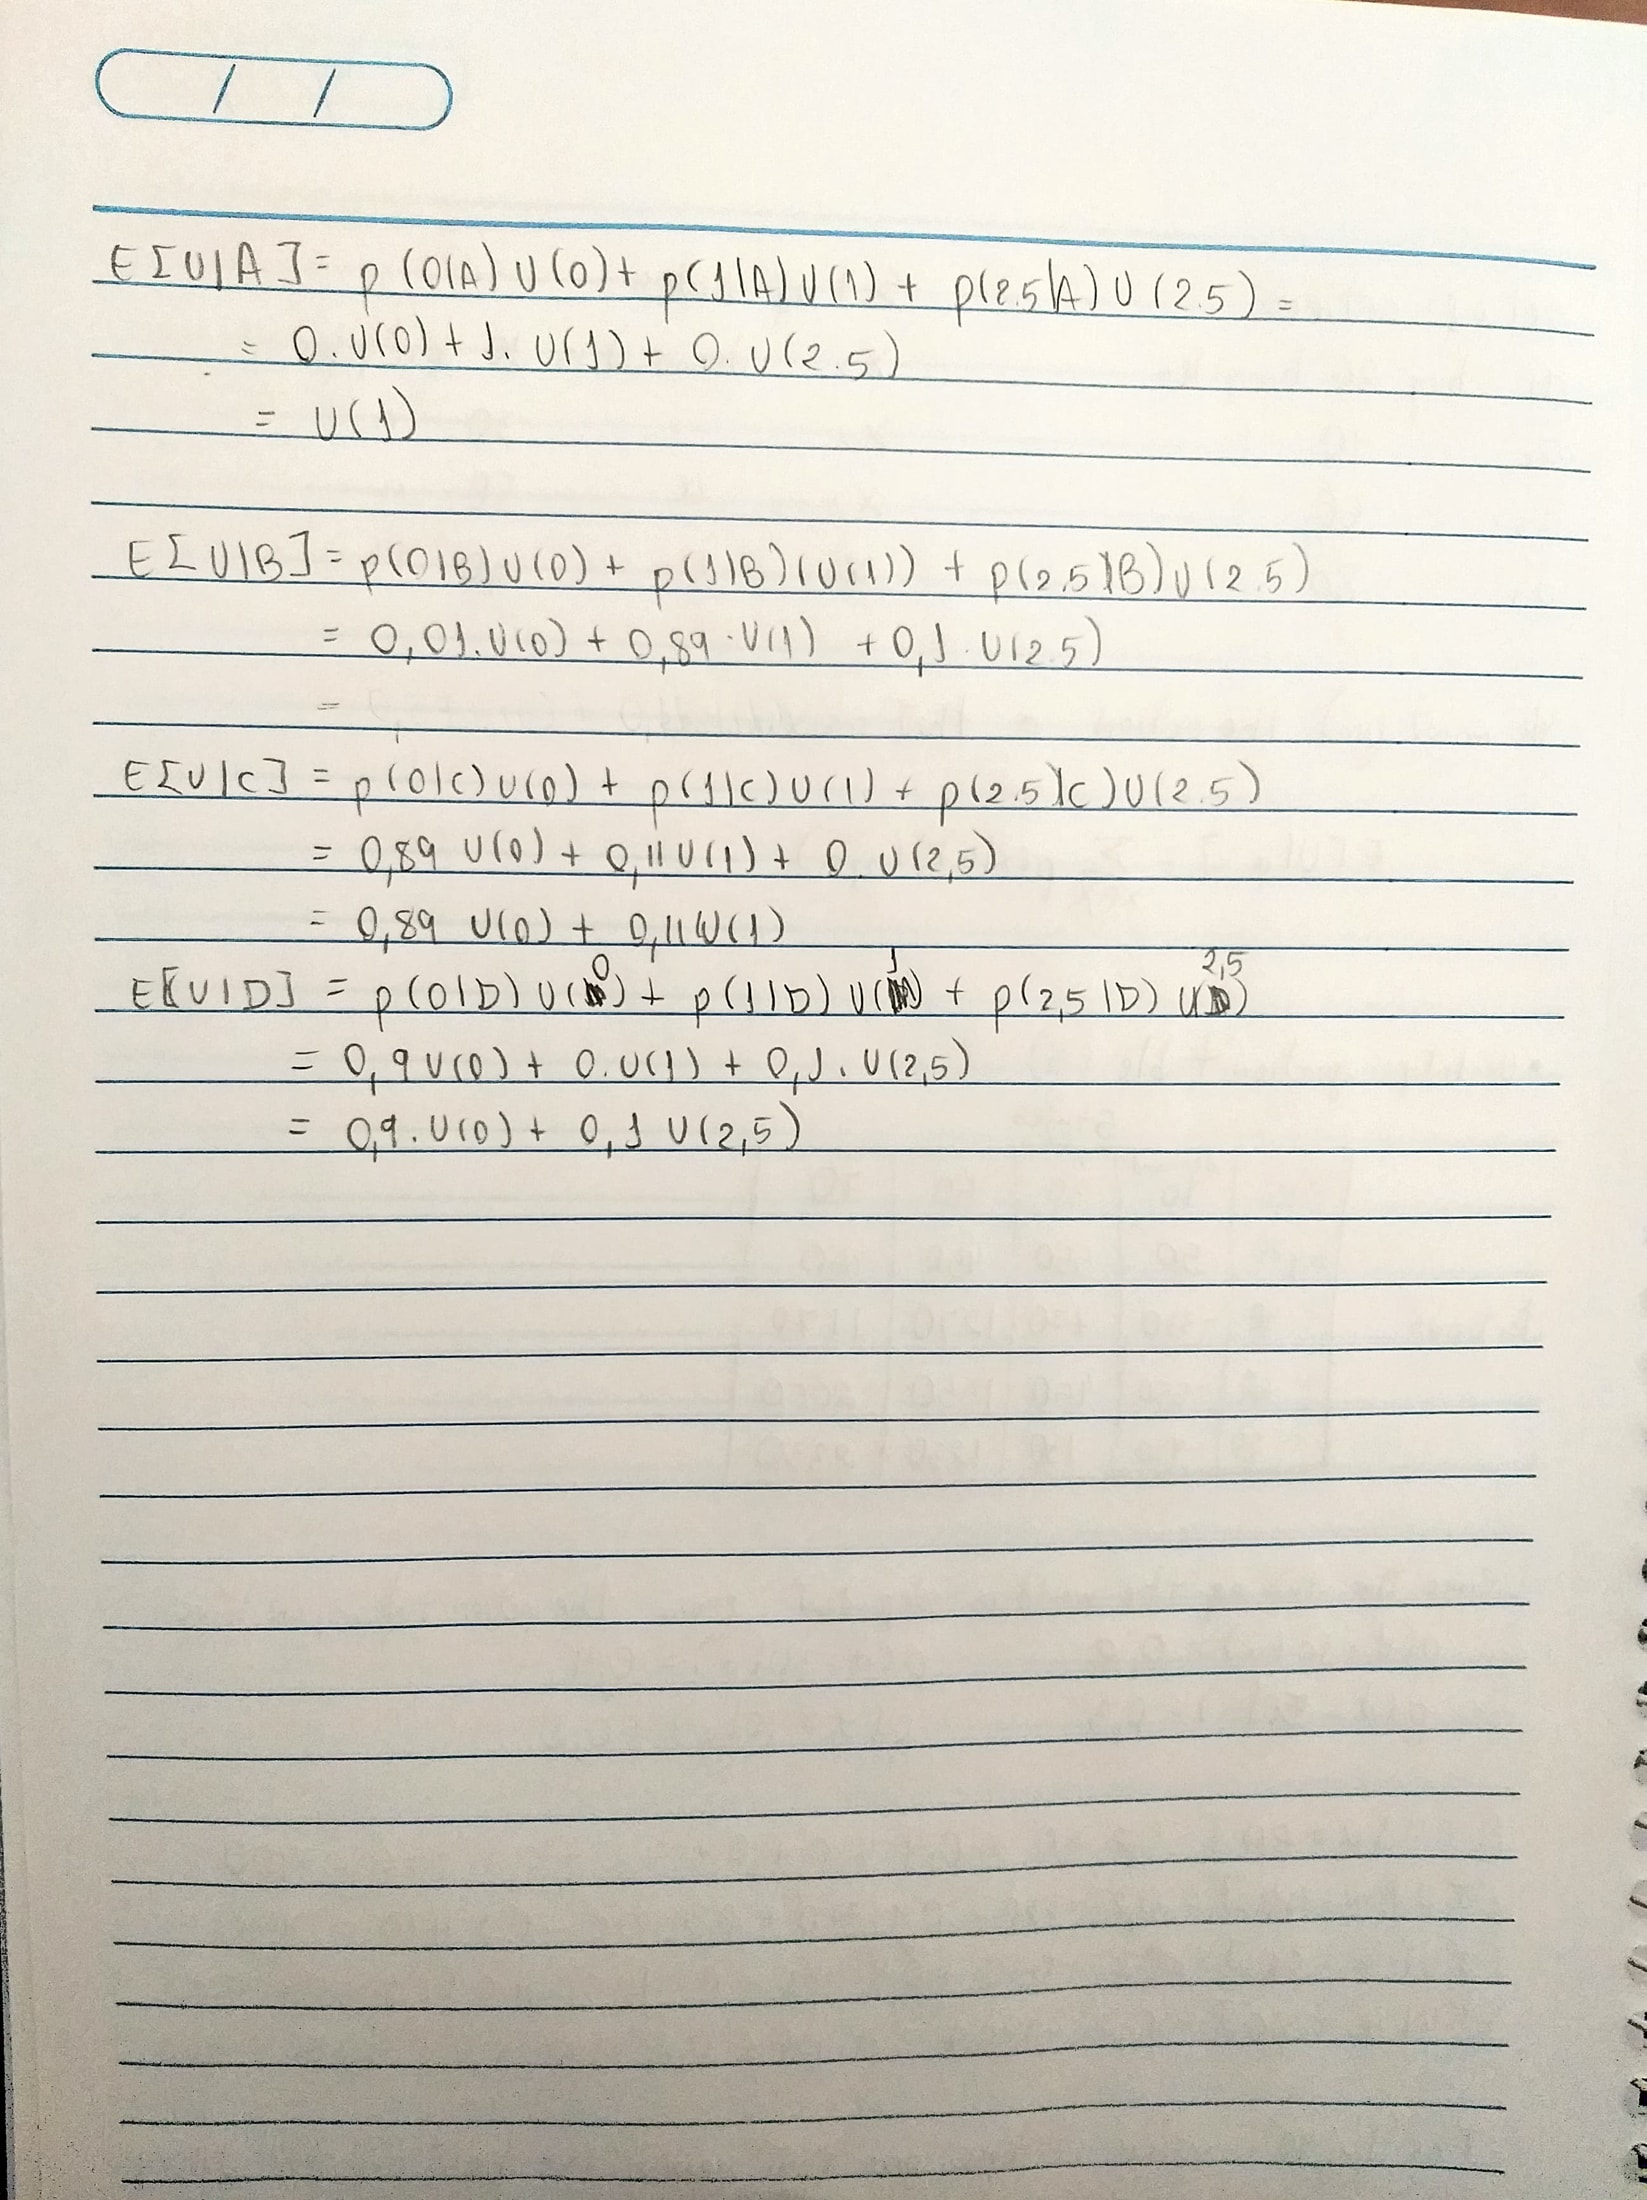 E[U|A] = p(0|A) U(0) + p(1|A) U(1) + p(2.5|A) U(2.5) =
= 0.U(0) + 1. U(1) + 0. U(2.5)
= U(1)
E[U|B] = p(0|B) U(0) + p(1|B) (U(1)) + p(2.5|B) U(2.5)
= 0,01. U(0) + 0,89 · U(1) + 0,1 · U(2.5)
=
E[U|C] = p(0|C) U(0) + p(1|C) U(1) + p(2.5|C) U(2.5)
= 0,89 U(0) + 0,11 U(1) + 0. U(2,5)
= 0,89 U(0) + 0,11 U(1)
E[U|D] = p(0|D) U(0) + p(1|D) U(1) + p(2,5|D) U(2,5)
= 0,9 U(0) + 0.U(1) + 0,1. U(2,5)
= 0,9. U(0) + 0,1 U(2,5)